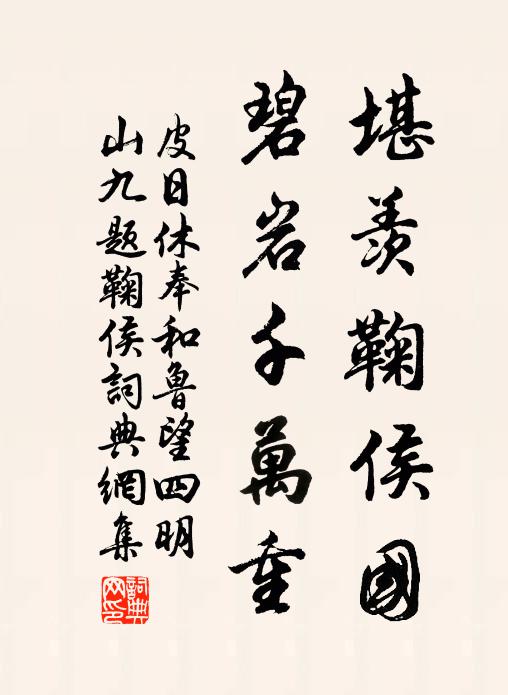 堪羨鞠侯國
碧岩千萬重
皮日休奉和魯望四明
山九題鞠侯詞典網集
詞典網印